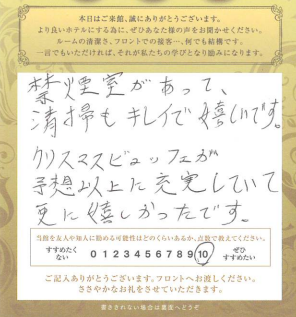 本日はご来館、誠にありがとうございます。
より良いホテルにする為に、ぜひあなた様の声をお聞かせください。
ルームの清潔さ、フロントでの接客…、何でも結構です。
一言でもいただければ、それが私たちの学びとなり励みになります。
禁煙室があって、
清掃もキレイで嬉しいです。
クリスマスビュッフェが
予想以上に充実していて
更に嬉しかったです。
当館を友人や知人に勧める可能性はどのくらいあるか、点数で教えてください。
すすめたくない 0 1 2 3 4 5 6 7 8 9 10 ぜひすすめたい
ご記入ありがとうございます。フロントへお渡しください。
ささやかなお礼をさせていただきます。
書ききれない場合は裏面へどうぞ